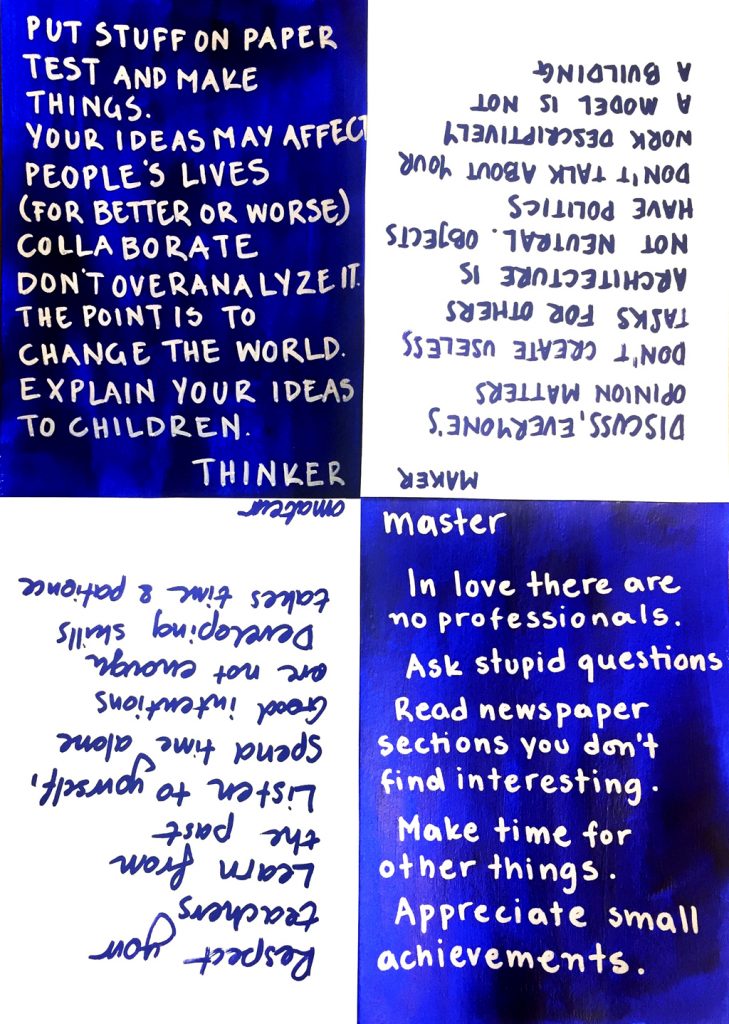 PUT STUFF ON PAPER
TEST AND MAKE
THINGS.
YOUR IDEAS MAY AFFECT
PEOPLE'S LIVES
(FOR BETTER OR WORSE)
COLLABORATE
DON'T OVERANALYZE IT.
THE POINT IS TO
CHANGE THE WORLD.
EXPLAIN YOUR IDEAS
TO CHILDREN.
THINKER
MAKER
DISCUSS, EVERYONE'S
OPINION MATTERS
DON'T CREATE USELESS
TASKS FOR OTHERS
ARCHITECTURE IS
NOT NEUTRAL. OBJECTS
HAVE POLITICS
DON'T TALK ABOUT YOUR
WORK DESCRIPTIVELY
A MODEL IS NOT
A BUILDING
Respect your
teachers
Learn from
the past
Listen to yourself,
spend time alone
Good intentions
are not enough
Developing skills
takes time & patience
amateur
master
In love there are
no professionals.
Ask stupid questions
Read newspaper
sections you don't
find interesting.
Make time for
other things.
Appreciate small
achievements.